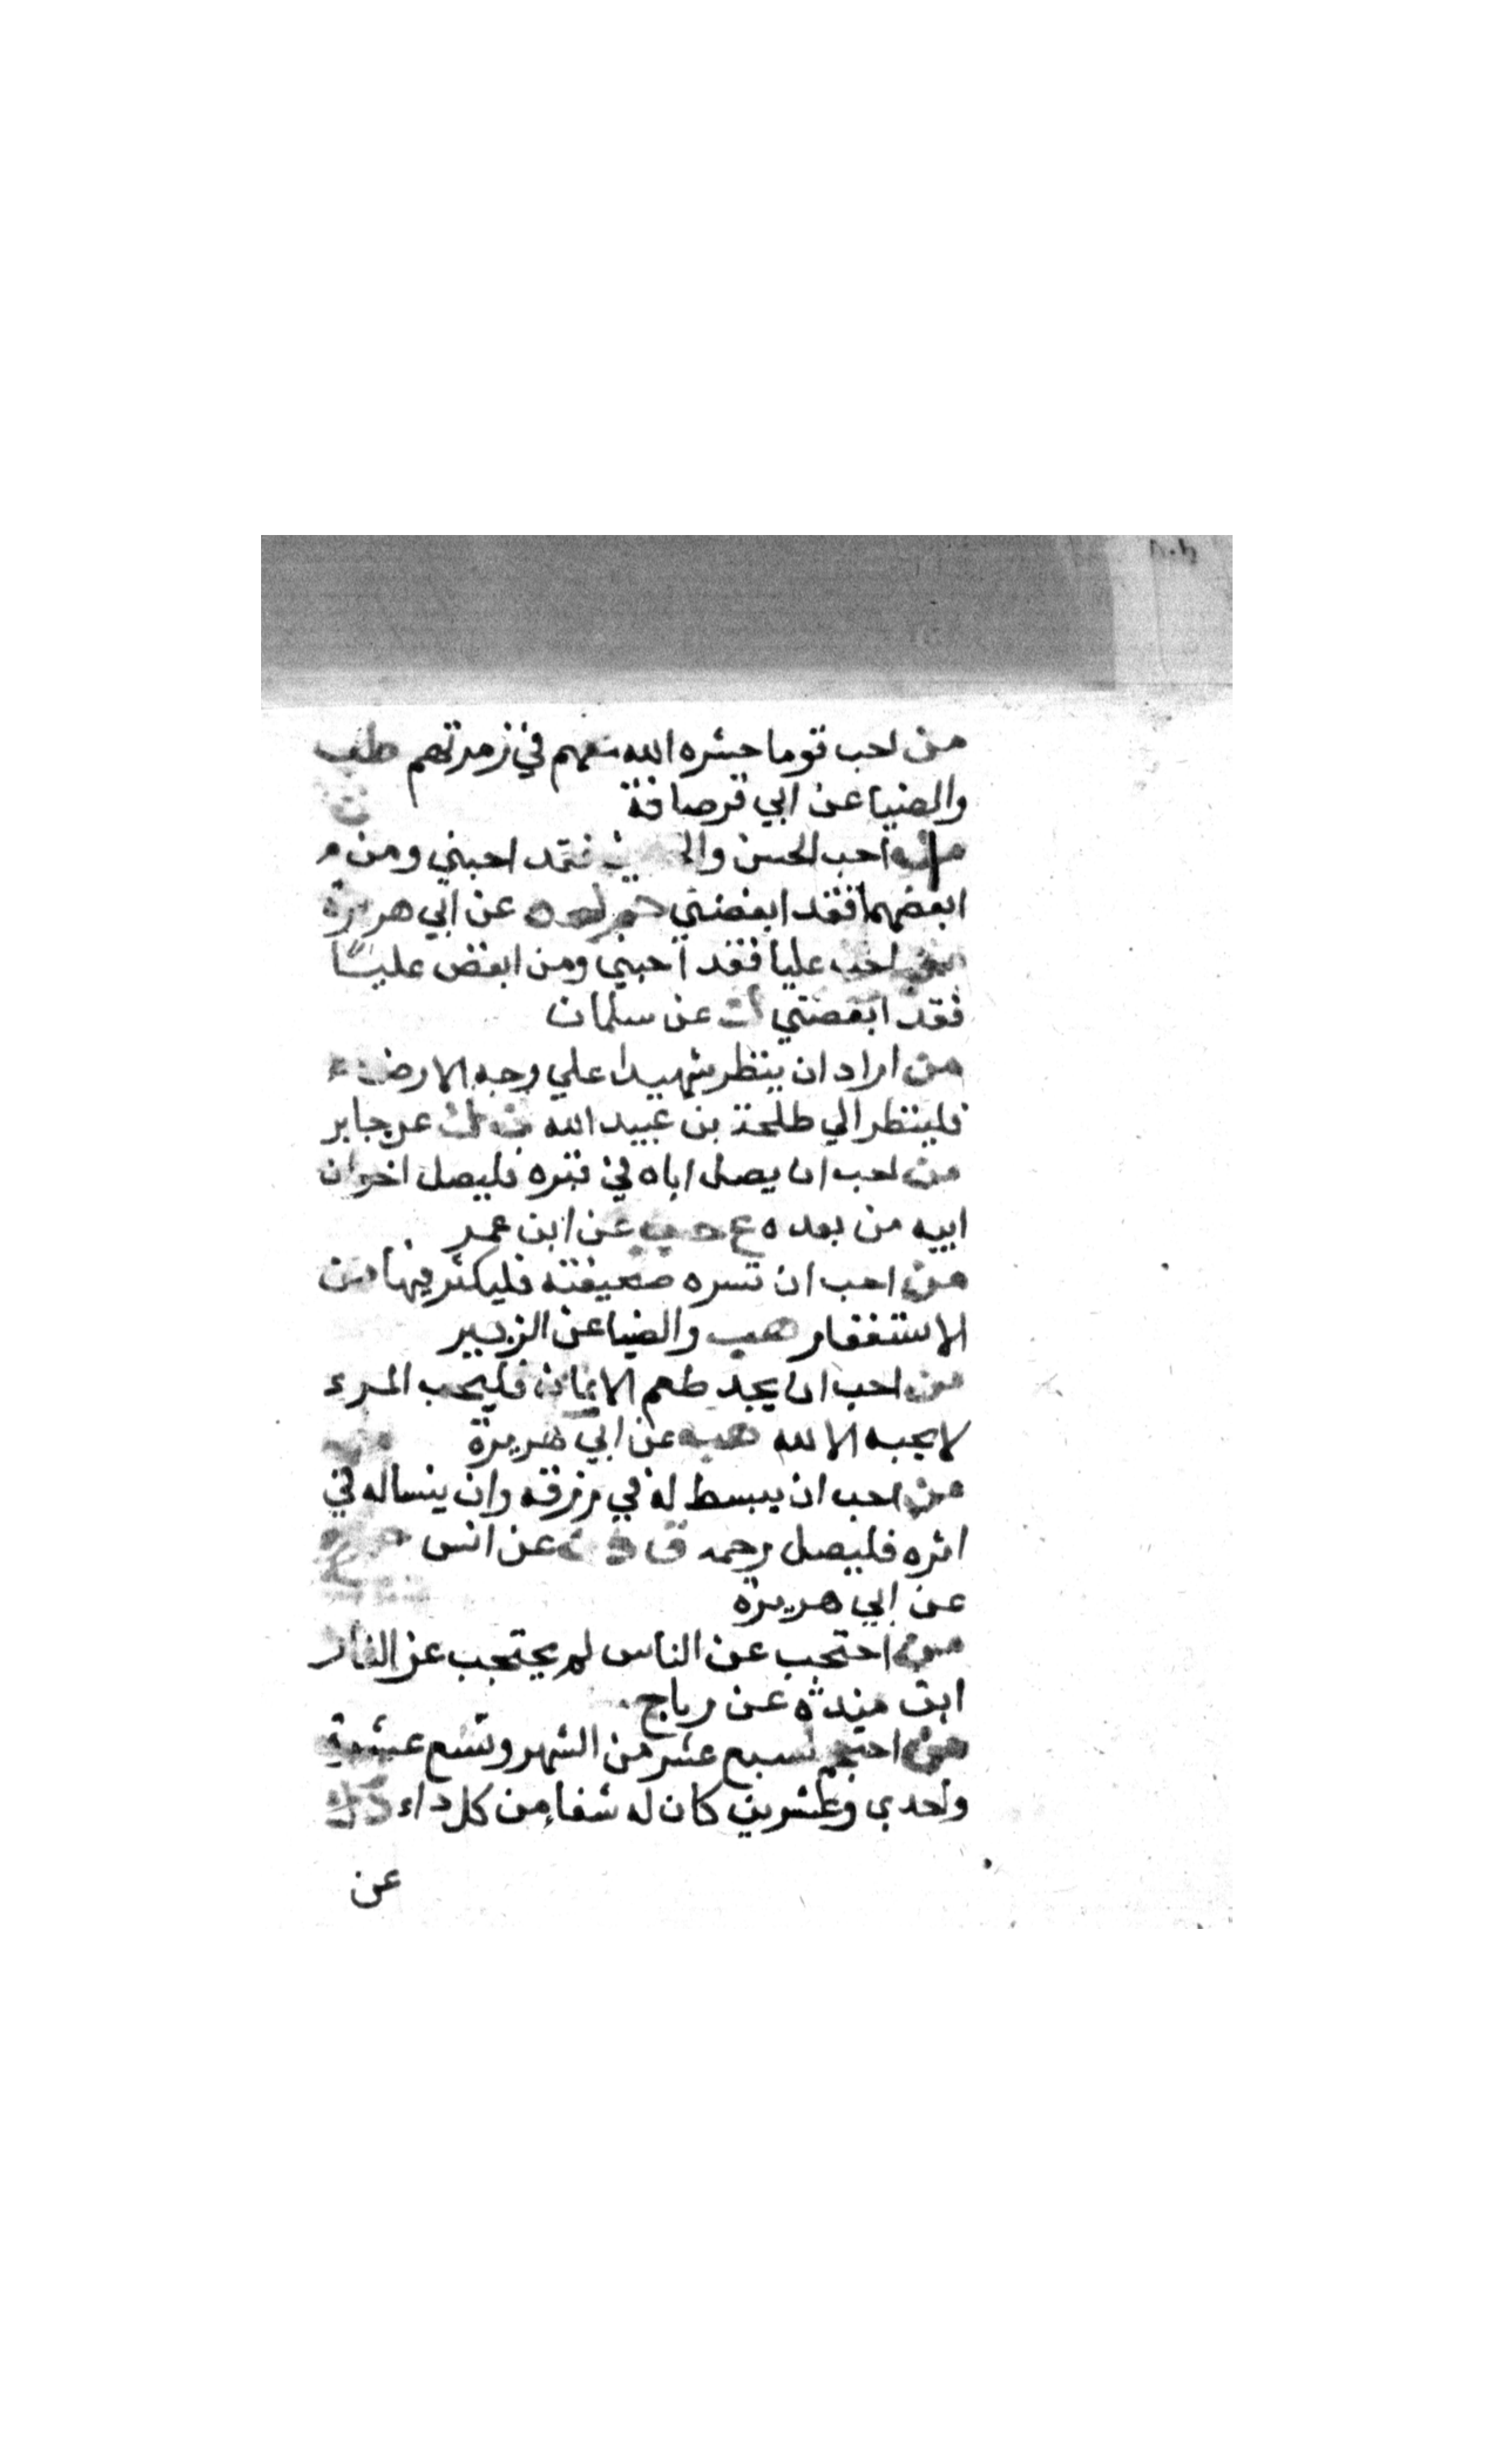 من احب قوما حشره الله معهم في زمرتهم طب
والضيا عن ابي قرصافة
من احب الحسن والحسين فقد احبني ومن
ابغضهما فقد ابغضني حم ه ك عن ابي هريرة
من احب عليا فقد احبني ومن ابغض عليا
فقد ابغضني ك عن سلمان
من اراد ان ينظر شهيدا علي وجه الارض
فلينظر الي طلحة بن عبيد الله ت ك عن جابر
من احب ان يصل اباه في قبره فليصل اخوان
ابيه من بعده ع حب عن ابن عمر
من احب ان تسره صحيفته فليكثر فيها من
الاستغفار هب والضيا عن الزبير
من احب ان يجد طعم الايمان فليحب المرء
لا يحبه الا لله هب عن ابي هريرة
من احب ان يبسط له في رزقه وان ينسا له في
اثره فليصل رحمه ق د ن عن انس حم خ
عن ابي هريرة
من احتجب عن الناس لم يحتجب عن النار
ابن مندة عن رباح
من احتجم لسبع عشر من الشهر وتسع عشرة
واحدي وعشرين كان له شفاء من كل داء د ك
عن